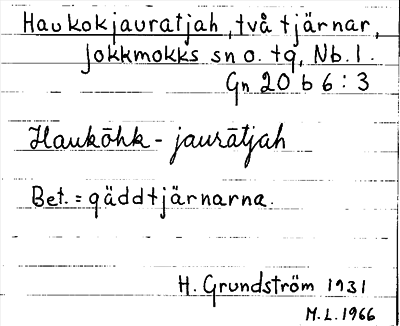 Haukokjauratjah, två tjärnar,
Jokkmokks sn o. tg, Nb. l.
Gn 20 b 6 : 3
Haukōhk - jaurātjah
Bet. = gäddtjärnarna.
H. Grundström 1931
M.L. 1966